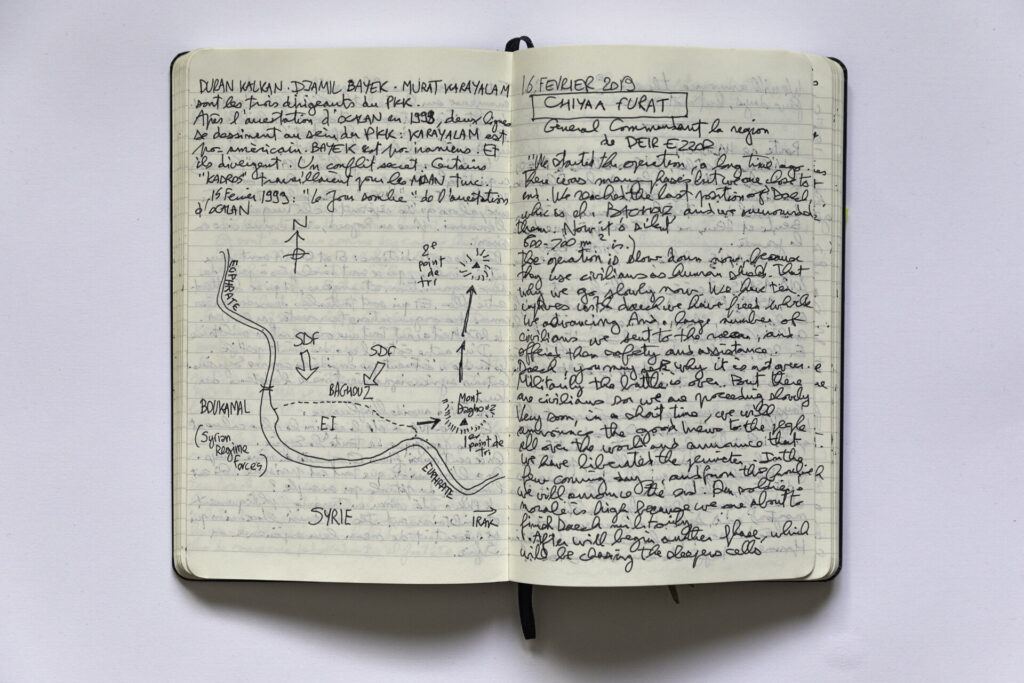 DURAN KALKAN · DJAMIL BAYEK · MURAT KARAYALAM
sont les trois dirigeants du PKK.
Après l'arrestation d'OCALAN en 1998, deux lignes
se dessiment au sein du PKK : KARAYALAM est
pro américain. BAYEK est pro iranien. Et
ils divergent. Un conflit secret. Certains
"KADROS" travailleraient pour les turc.
15 Février 1999 : "le Jour sombre" de l'arrestation
d'OCALAN
N
2e
point
de
tri
EUPHRATE
SDF
SDF
BAGHOUZ
BOUKAMAL
(Syrian
Regime
forces)
EI
Mont
Baghouz
1er
point de
tri
EUPHRATE
SYRIE
IRAK
16 FEVRIER 2019
CHIYAA FURAT
General Commandant la region
de DEIR EZZOR
"We started the operation a long time ago.
There was many phases but we are close to
end. We reached the last position of Daech,
which is, BAGHOUZ, and we surrounded
them. Now it's
500-700 m² is.)
the operation is slow down now, because
they use civilians as human shield. That
why we go slowly now. We have ten
captives with daech we have freed while
we advancing. And a large number of
civilians we sent to the, and
offered them safety and assistance.
Daech, you may ask why it is not over.
Militarily the battle is over. But there
are civilians so we are proceeding slowly
Very soon, in a short time, we will
announce the good news to the people
all over the world and announce that
we have liberated the. In the
few coming days, and from this
we will announce the end. Our soldiers
morale is high because we are about to
finish Daech militarily.
After will begin another phase, which
will be chasing the sleepers cells